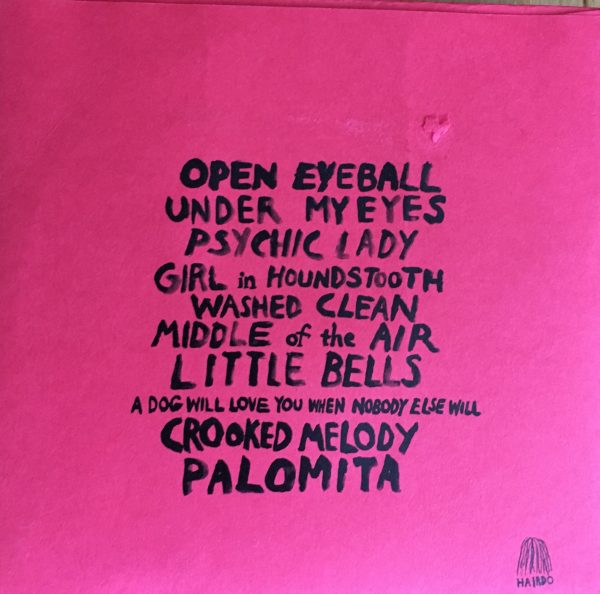 OPEN EYEBALL
UNDER MY EYES
PSYCHIC LADY
GIRL in HOUNDSTOOTH
WASHED CLEAN
MIDDLE of the AIR
LITTLE BELLS
A DOG WILL LOVE YOU WHEN NOBODY ELSE WILL
CROOKED MELODY
PALOMITA
HAIRDO